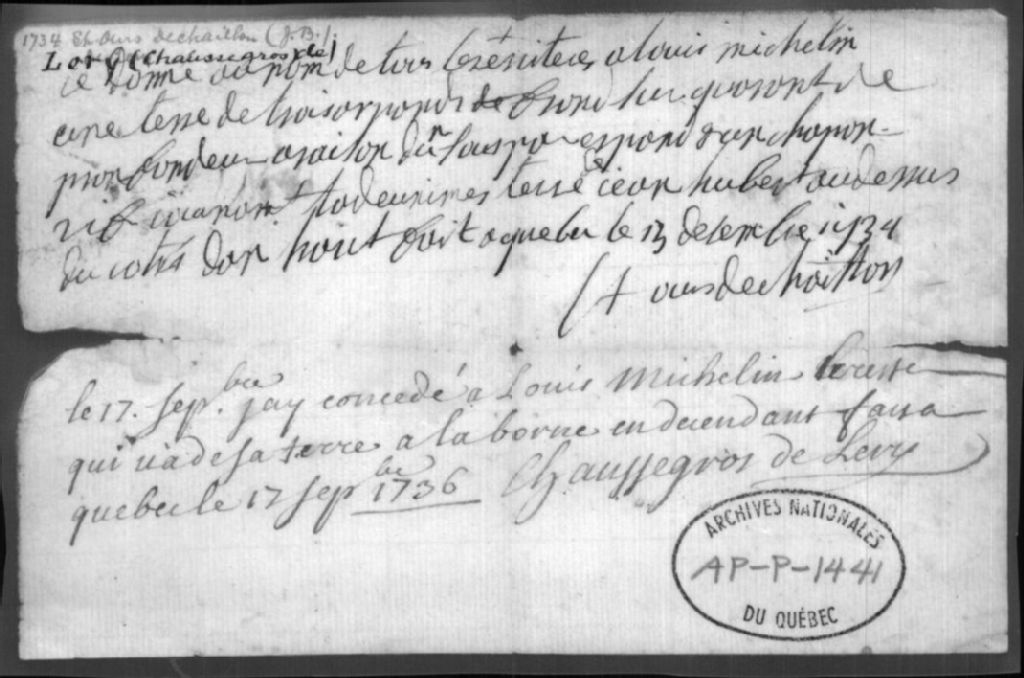 1734 St. Ours dechaillon (J.B.).
Lery (Chaussegros de)
je donne au nom de tous les a louis michelin
une terre de trois arpans de front sur quarant de
profondeur a raison d'un sous par arpans d'un chapon
vif la deusiemes terre jean hubert au dessus
du cotes d'an haut fait a quebec le 13 desembre 1734
St ours dechaillon
le 17. sepbre. jay concedé a Louis Michelin
qui va de sa terre a la borne en decendant fait a
quebec le 17 sepbre 1736 Chaussegros de Lery
ARCHIVES NATIONALES
AP-P-1441
DU QUÉBEC